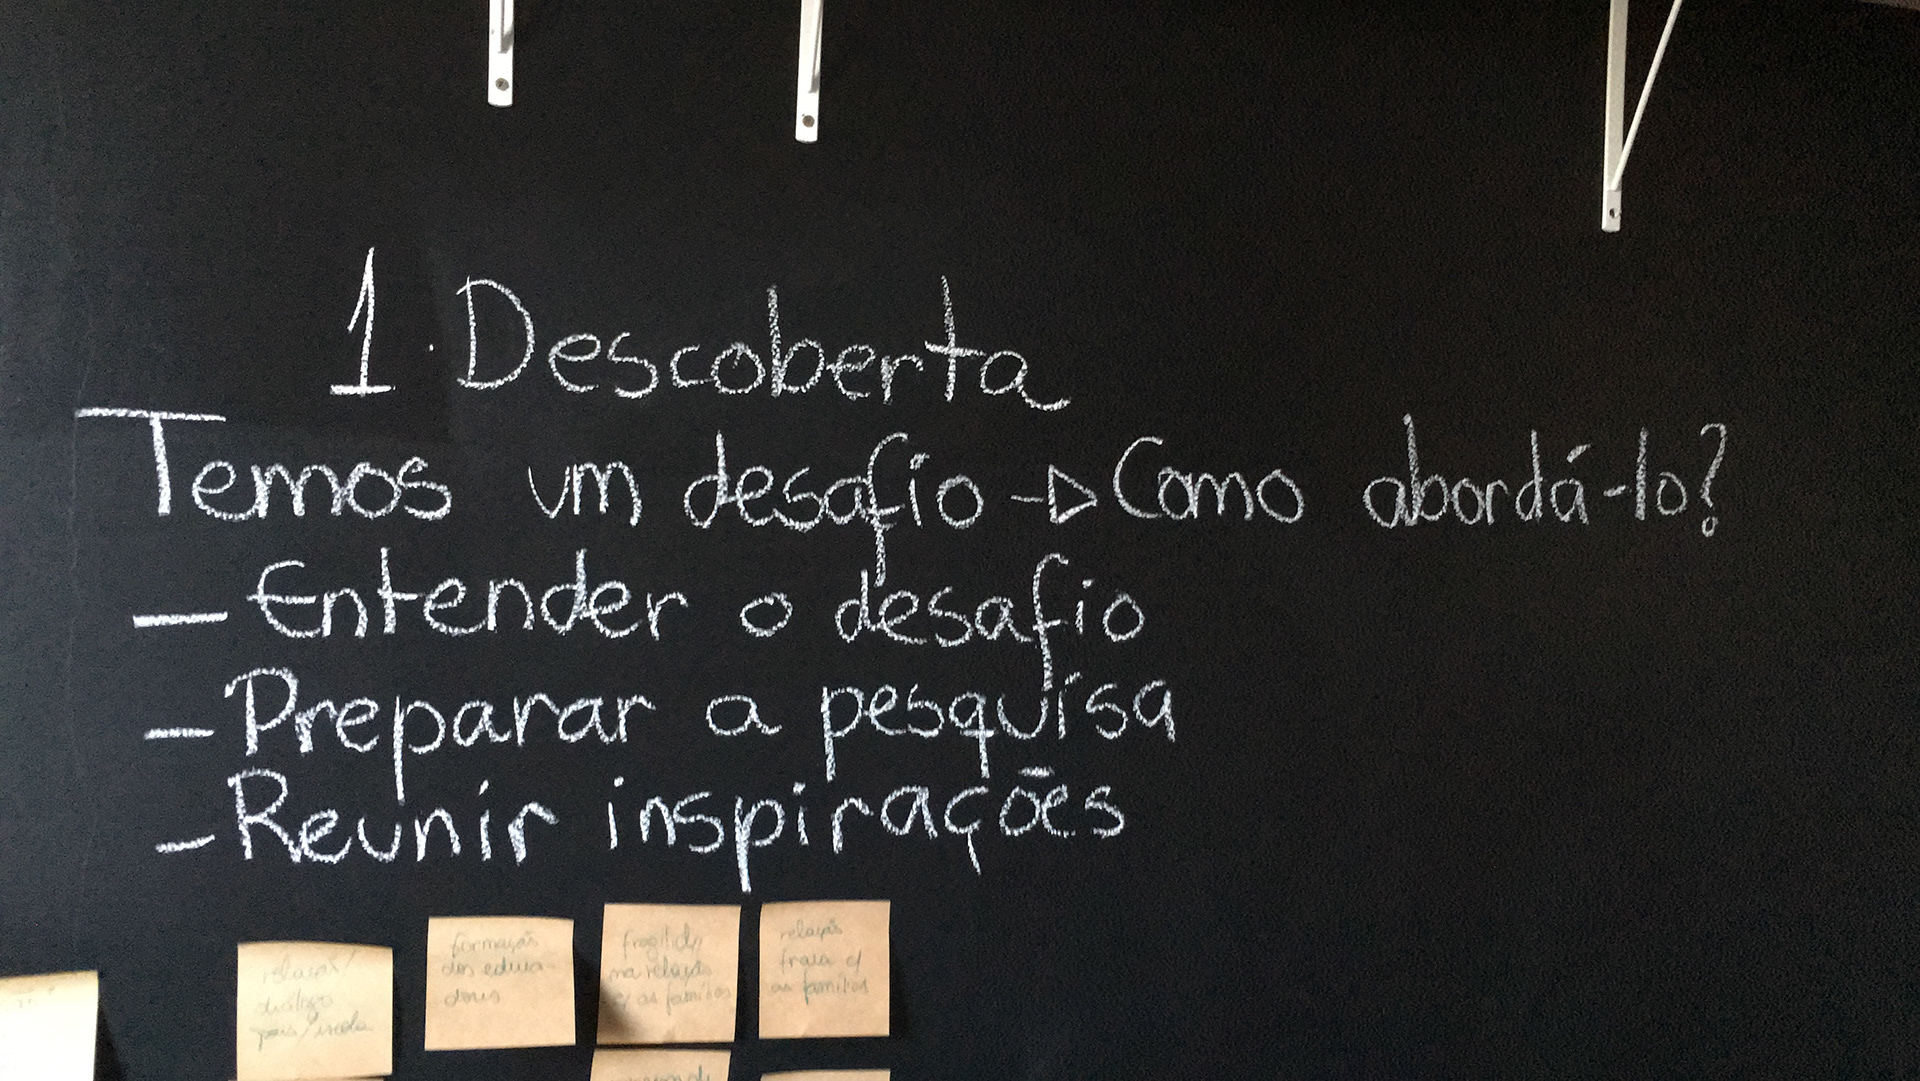 1. Descoberta
Temos um desafio -> Como abordá-lo?
- Entender o desafio
- Preparar a pesquisa
- Reunir inspirações
relação/
diálogo
pais/escola
formação
dos educa-
dores
fragilid//
na relação
c/ as famílias
relação
fraca c/
as famílias